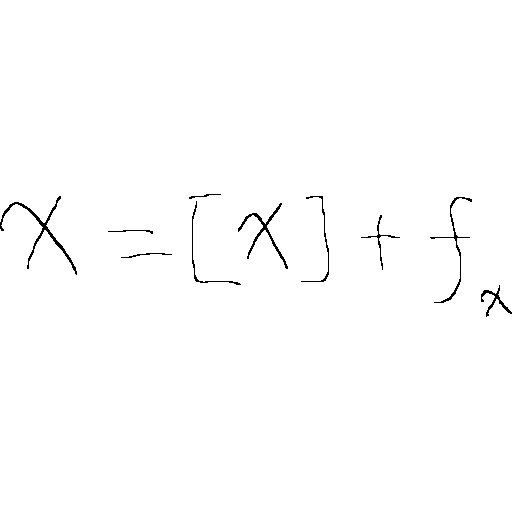 x = [x] + f_x